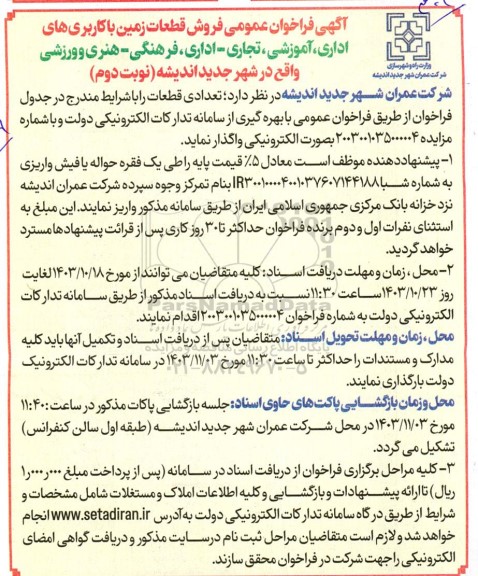 آگهی فراخوان عمومی فروش قطعات زمین با کاربری های
اداری، آموزشی، تجاری - اداری، فرهنگی - هنری و ورزشی
واقع در شهر جدید اندیشه (نوبت دوم)
وزارت راه و شهرسازی
شرکت عمران شهر جدید اندیشه
شرکت عمران شهر جدید اندیشه در نظر دارد؛ تعدادی قطعات را با شرایط مندرج در جدول
فراخوان از طریق فراخوان عمومی با بهره گیری از سامانه تدارکات الکترونیکی دولت و با شماره
مزایده ۲۰۰۳۰۰۱۰۳۵۰۰۰۰۰۴ بصورت الکترونیکی واگذار نماید.
۱- پیشنهاد دهنده موظف است معادل ۵٪ قیمت پایه را طی یک فقره حواله یا فیش واریزی
به شماره شبا IR۳۰۰۱۰۰۰۰۴۰۰۱۰۳۷۶۰۷۱۴۴۱۸۸ بنام تمرکز وجوه سپرده شرکت عمران اندیشه
نزد خزانه بانک مرکزی جمهوری اسلامی ایران از طریق سامانه مذکور واریز نمایند. این مبلغ به
استثنای نفرات اول و دوم برنده فراخوان حداکثر تا ۳۰ روز کاری پس از قرائت پیشنهادها مسترد
خواهد گردید.
۲- محل، زمان و مهلت دریافت اسناد: کلیه متقاضیان می توانند از مورخ ۱۴۰۳/۱۰/۱۸ لغایت
روز ۱۴۰۳/۱۰/۲۳ ساعت ۱۱:۳۰ نسبت به دریافت اسناد مذکور از طریق سامانه تدارکات
الکترونیکی دولت به شماره فراخوان ۲۰۰۳۰۰۱۰۳۵۰۰۰۰۰۴ اقدام نمایند.
محل، زمان و مهلت تحویل اسناد: متقاضیان پس از دریافت اسناد و تکمیل آنها باید کلیه
مدارک و مستندات را حداکثر تا ساعت ۱۱:۳۰ مورخ ۱۴۰۳/۱۱/۰۳ در سامانه تدارکات الکترونیک
دولت بارگذاری نمایند.
محل و زمان بازگشایی پاکت های حاوی اسناد: جلسه بازگشایی پاکات مذکور در ساعت: ۱۱:۴۰
مورخ ۱۴۰۳/۱۱/۰۳ در محل شرکت عمران شهر جدید اندیشه (طبقه اول سالن کنفرانس)
تشکیل می گردد.
۳- کلیه مراحل برگزاری فراخوان از دریافت اسناد در سامانه (پس از پرداخت مبلغ ۱٫۰۰۰٫۰۰۰
ریال) تا ارائه پیشنهادات و بازگشایی و کلیه اطلاعات املاک و مستغلات شامل مشخصات و
شرایط از طریق درگاه سامانه تدارکات الکترونیکی دولت به آدرس www.setadiran.ir انجام
خواهد شد و لازم است متقاضیان مراحل ثبت نام در سایت مذکور و دریافت گواهی امضای
الکترونیکی را جهت شرکت در فراخوان محقق سازند.
ParsNamadData
۰۲۱-۸۸۳۴۹۶۷۰-۵